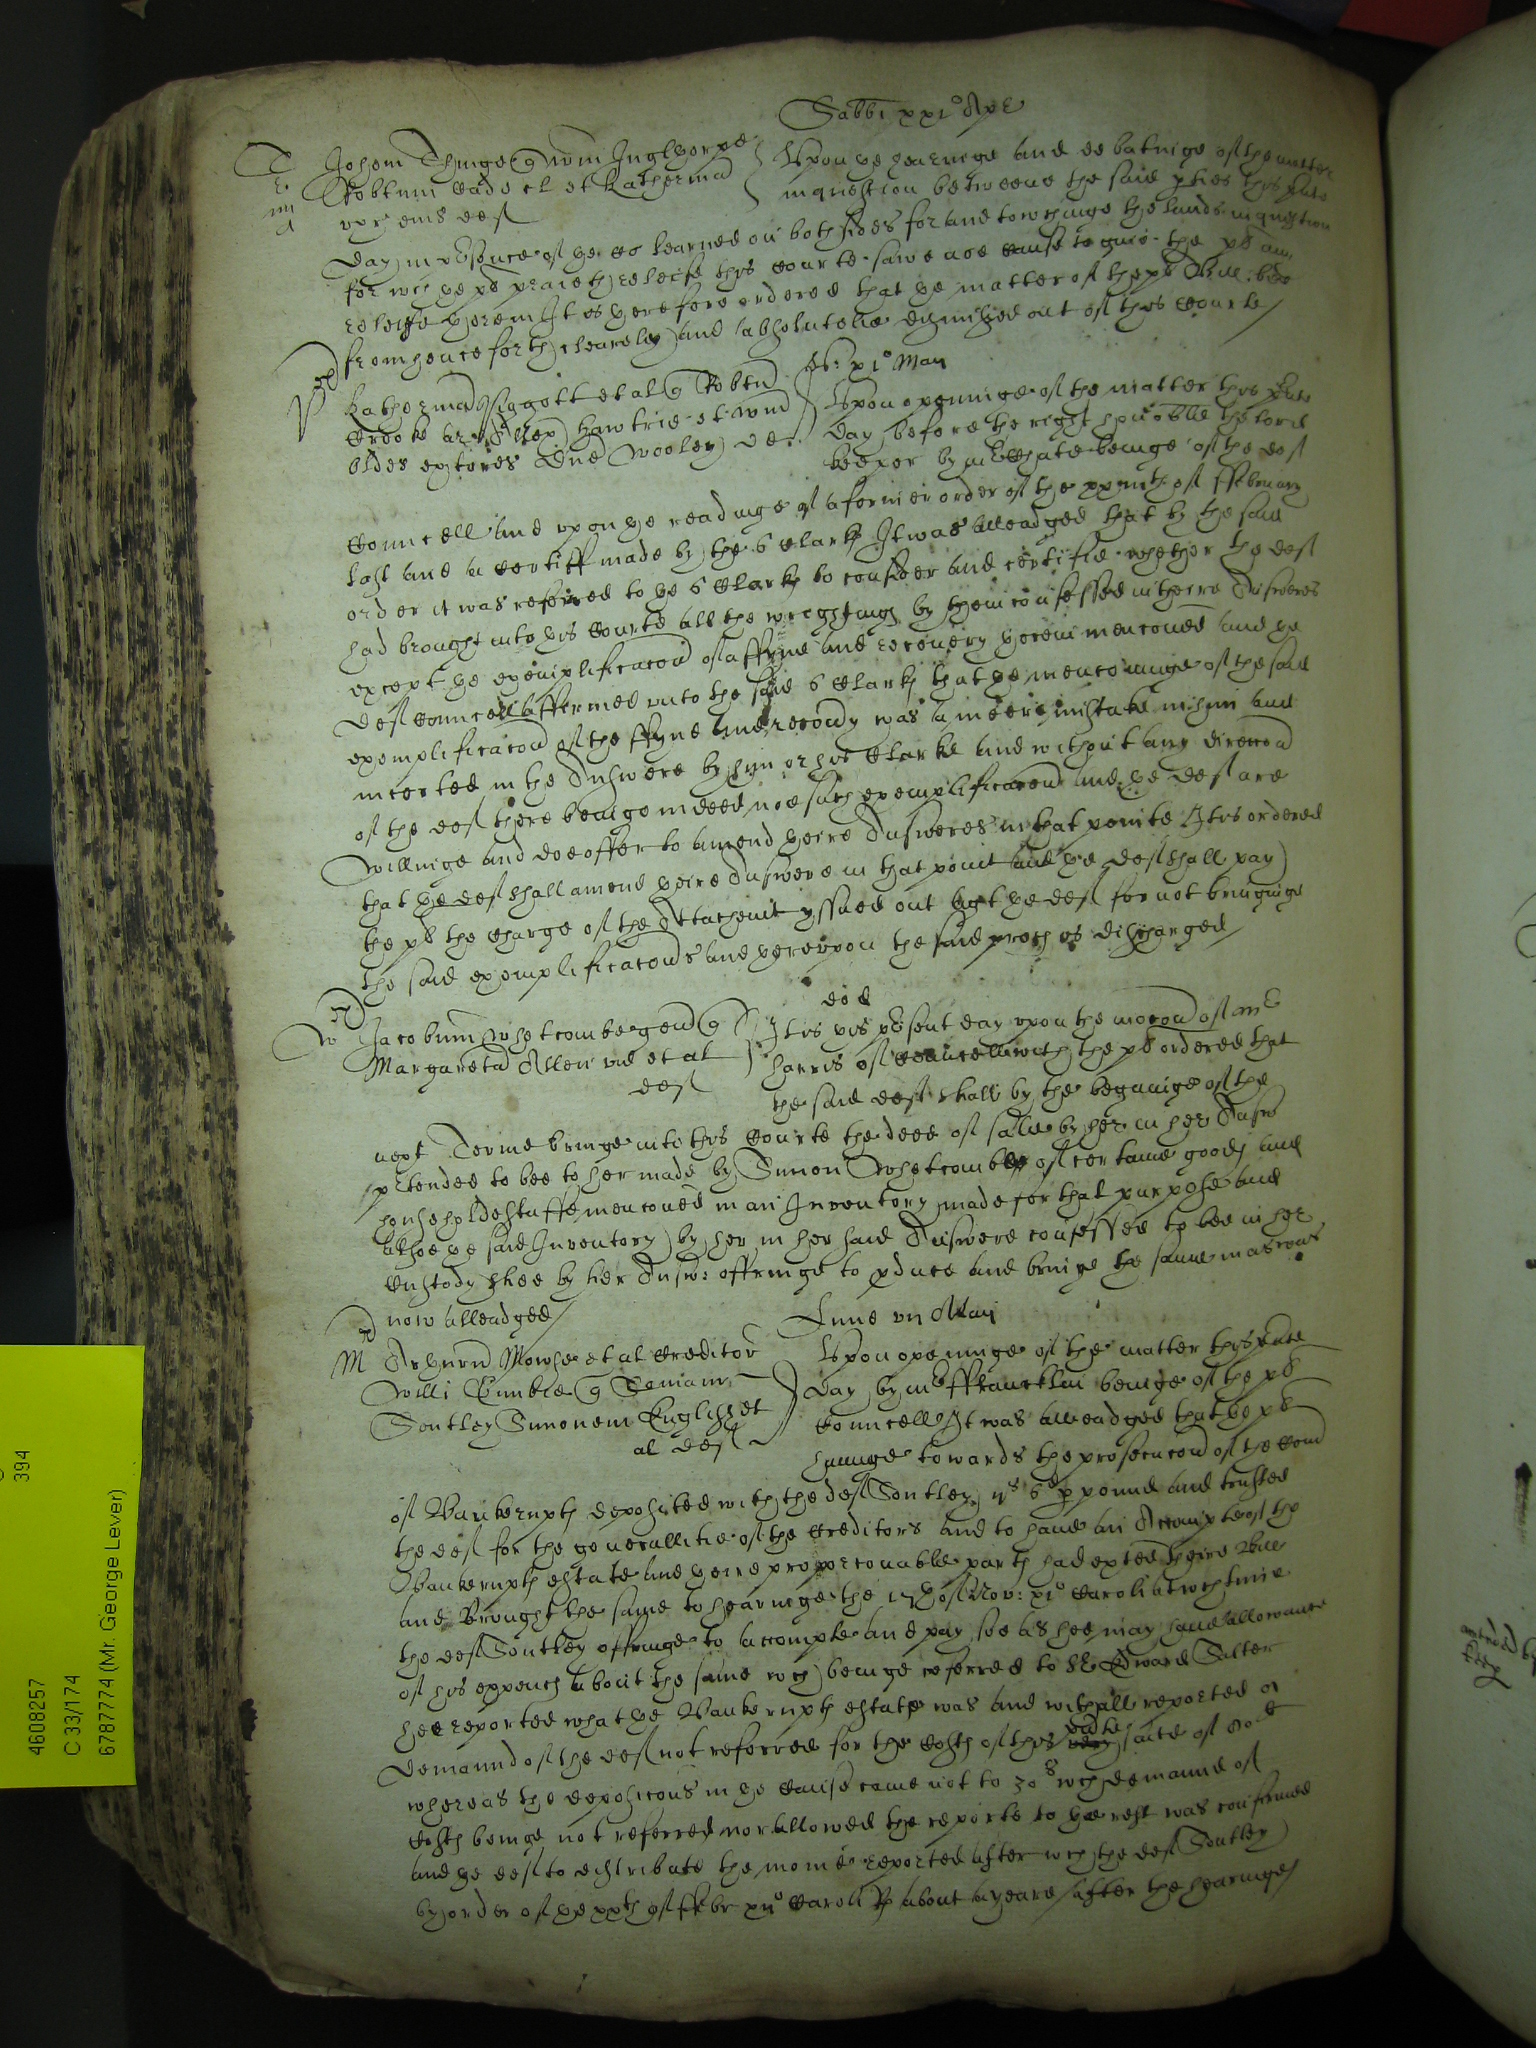 Sabbi xxi° Apr
Johem Thinge q Wm Inglthorpe
Robtum Cade cl et Katherina
uxr eius def
Upon ye hearinge and debatinge of the matter
in question betweene the said pties this pnte
day in psence of ye Co learned on both sides for and towchinge the lands in question
for wch ye pl praieth releife this Courte sawe noe cause to give the pl any
releife therein It is therefore ordered that ye matter of the pl Bill bee
from henceforth clearely and absolutelie dismissed out of this Courte
xi° Maii
Katherina Piggott et al q Robtu
Crooke ar Hawtrie et Wm
oldes extores Wooley def
Upon openinge of the matter this pnte
day before the right honoble the lord
keeper by mr beinge of the def
Councell and upon ye readinge of a former order of the of ffebruary
last and a certiff made by the 6 Clarks It was alleadged that by the said
order it was referred to ye 6 Clarks to consider and certifie whether the def
had brought into this Courte all the wrightings by them confessed in theire Answeres
except ye exemplificacon of a ffyne and recovery therein menconed and ye
def Councell affirmed unto the said 6 Clarks that ye menconinge of the said
exemplificacon of the ffyne and recovery was a meere mistake in him and
incerted in the Answere by him or his Clarke and without any direccon
of the def there beinge indeed noe such exemplificacon and ye def are
willinge and doe offer to amend theire Answeres in that pointe It is ordered
that ye def shall amend theire Answere in that point and ye def shall pay
the pl the charge of the Attachmt yssued out agt ye def for not bringinge
the said exemplificacons and thereupon the said proces is discharged
eod
Jacobum Whetcombe gen q
Margareta Allen vid et al
def
It is this psent day upon the mocon of mr
Harris of Councell with the pl ordered that
the said def shall by the beginninge of the
next Terme bringe into this Courte the deed of sale by her in her Answ
ptended to bee to her made by Simon Whetcombe of certaine goods and
householdestuffe menconed in an Inventory made for that purpose and
alsoe ye said Inventory by her in her said Answere confessed to bee in her
Custody shee by her Answ: offringe to pduce and bringe the same in as was
now alleadged
Lune vii Maii
M Arthurn Mowse et al Creditor
Willi Bunble q
Soutley Simonem English et
al def
Upon openinge of the matter this pnte
day by mr ffrancklin beinge of the pl
Councell It was alleadged that ye pl
havinge towards the prosecucon of the Com
of Banckrupts deposited with the def Soutley 6d p pound and trusted
the def for the generallitie of the Creditors and to have an Accompte of the
Banckrupts estate and theire proporconable parts had exted theire Bill
and brought the same to hearinge the 17th of Nov: xi° Caroli at wch time
the def Soutley offringe to accompte and pay soe as hee may have allowance
of his expences about the same wch beinge referred to Sr Edward Salter
hee reported what ye Banckrupts estate was and withall reported a
demaund of the def not referred for the Costs of this suite of 80l
whereas the deposicons in ye Cause came not to 30s wch demaund of
Costs beinge not referred nor allowed the reporte to ye rest was confirmed
and ye def to distribute the monie reported after wch the def Soutley
by order of ye xxth of ffebr xii° Caroli Rs about a yeare after the hearinge
394
4608257
C 33/174
6787774 (Mr. George Lever)